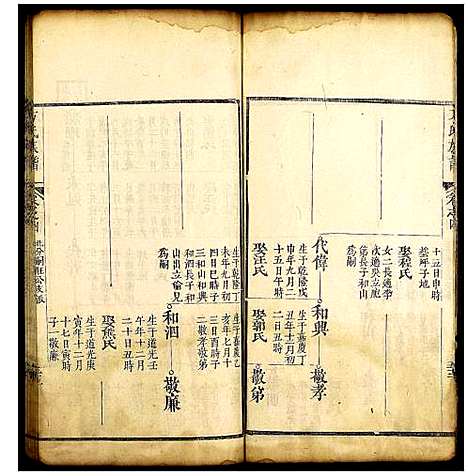 氏族譜
卷之四
十五日申時
葬坪子地
娶程氏
女二長適李
次適吳立胞
弟長子和山
爲嗣
代偉
和興
敬孝
生于乾隆戊
申年九月二
十五日午時
娶汪氏
生于嘉慶丁
丑年十二月
二十一日丑時
娶郭氏
敬第
生于乾隆丁
未年九月初
四日巳時子
三和山和興
和泗長子和
山出立倫兄
爲嗣
生于嘉慶乙
亥年七月十
三日酉時子
二敬孝敬第
和泗
敬廉
生于道光壬
午年十二月
二十日丑時
娶熊氏
生于道光庚
寅年十二月
十七日寅時
子一敬廉
氏族譜